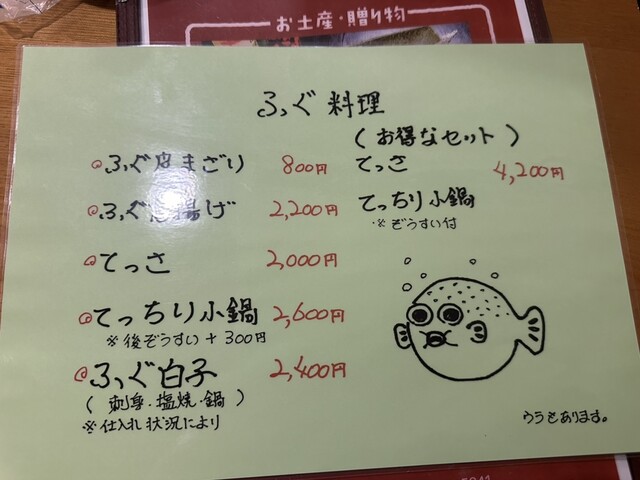 お土産・贈り物
ふぐ料理
ふぐ皮まざり 800円
ふぐ唐揚げ 2,200円
てっさ 2,000円
てっちり小鍋 2,600円
※後ぞうすい+300円
ふぐ白子 2,400円
(刺身・塩焼・鍋)
※仕入れ状況により
(お得なセット)
てっさ 4,200円
てっちり小鍋
※ぞうすい付
ウラもあります。